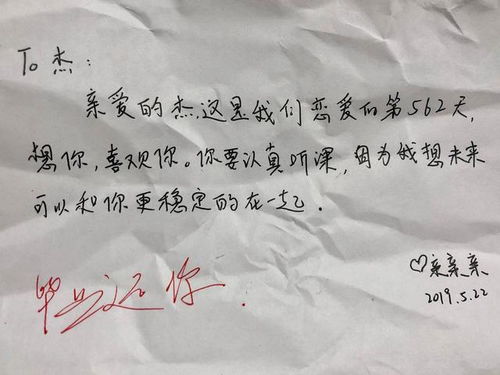 To 杰：
亲爱的杰，这是我们恋爱的第562天，
想你，喜欢你。你要认真听课，因为我想未来
可以和你更稳定的在一起．
♡亲亲亲
2019.5.22
毕业还你．